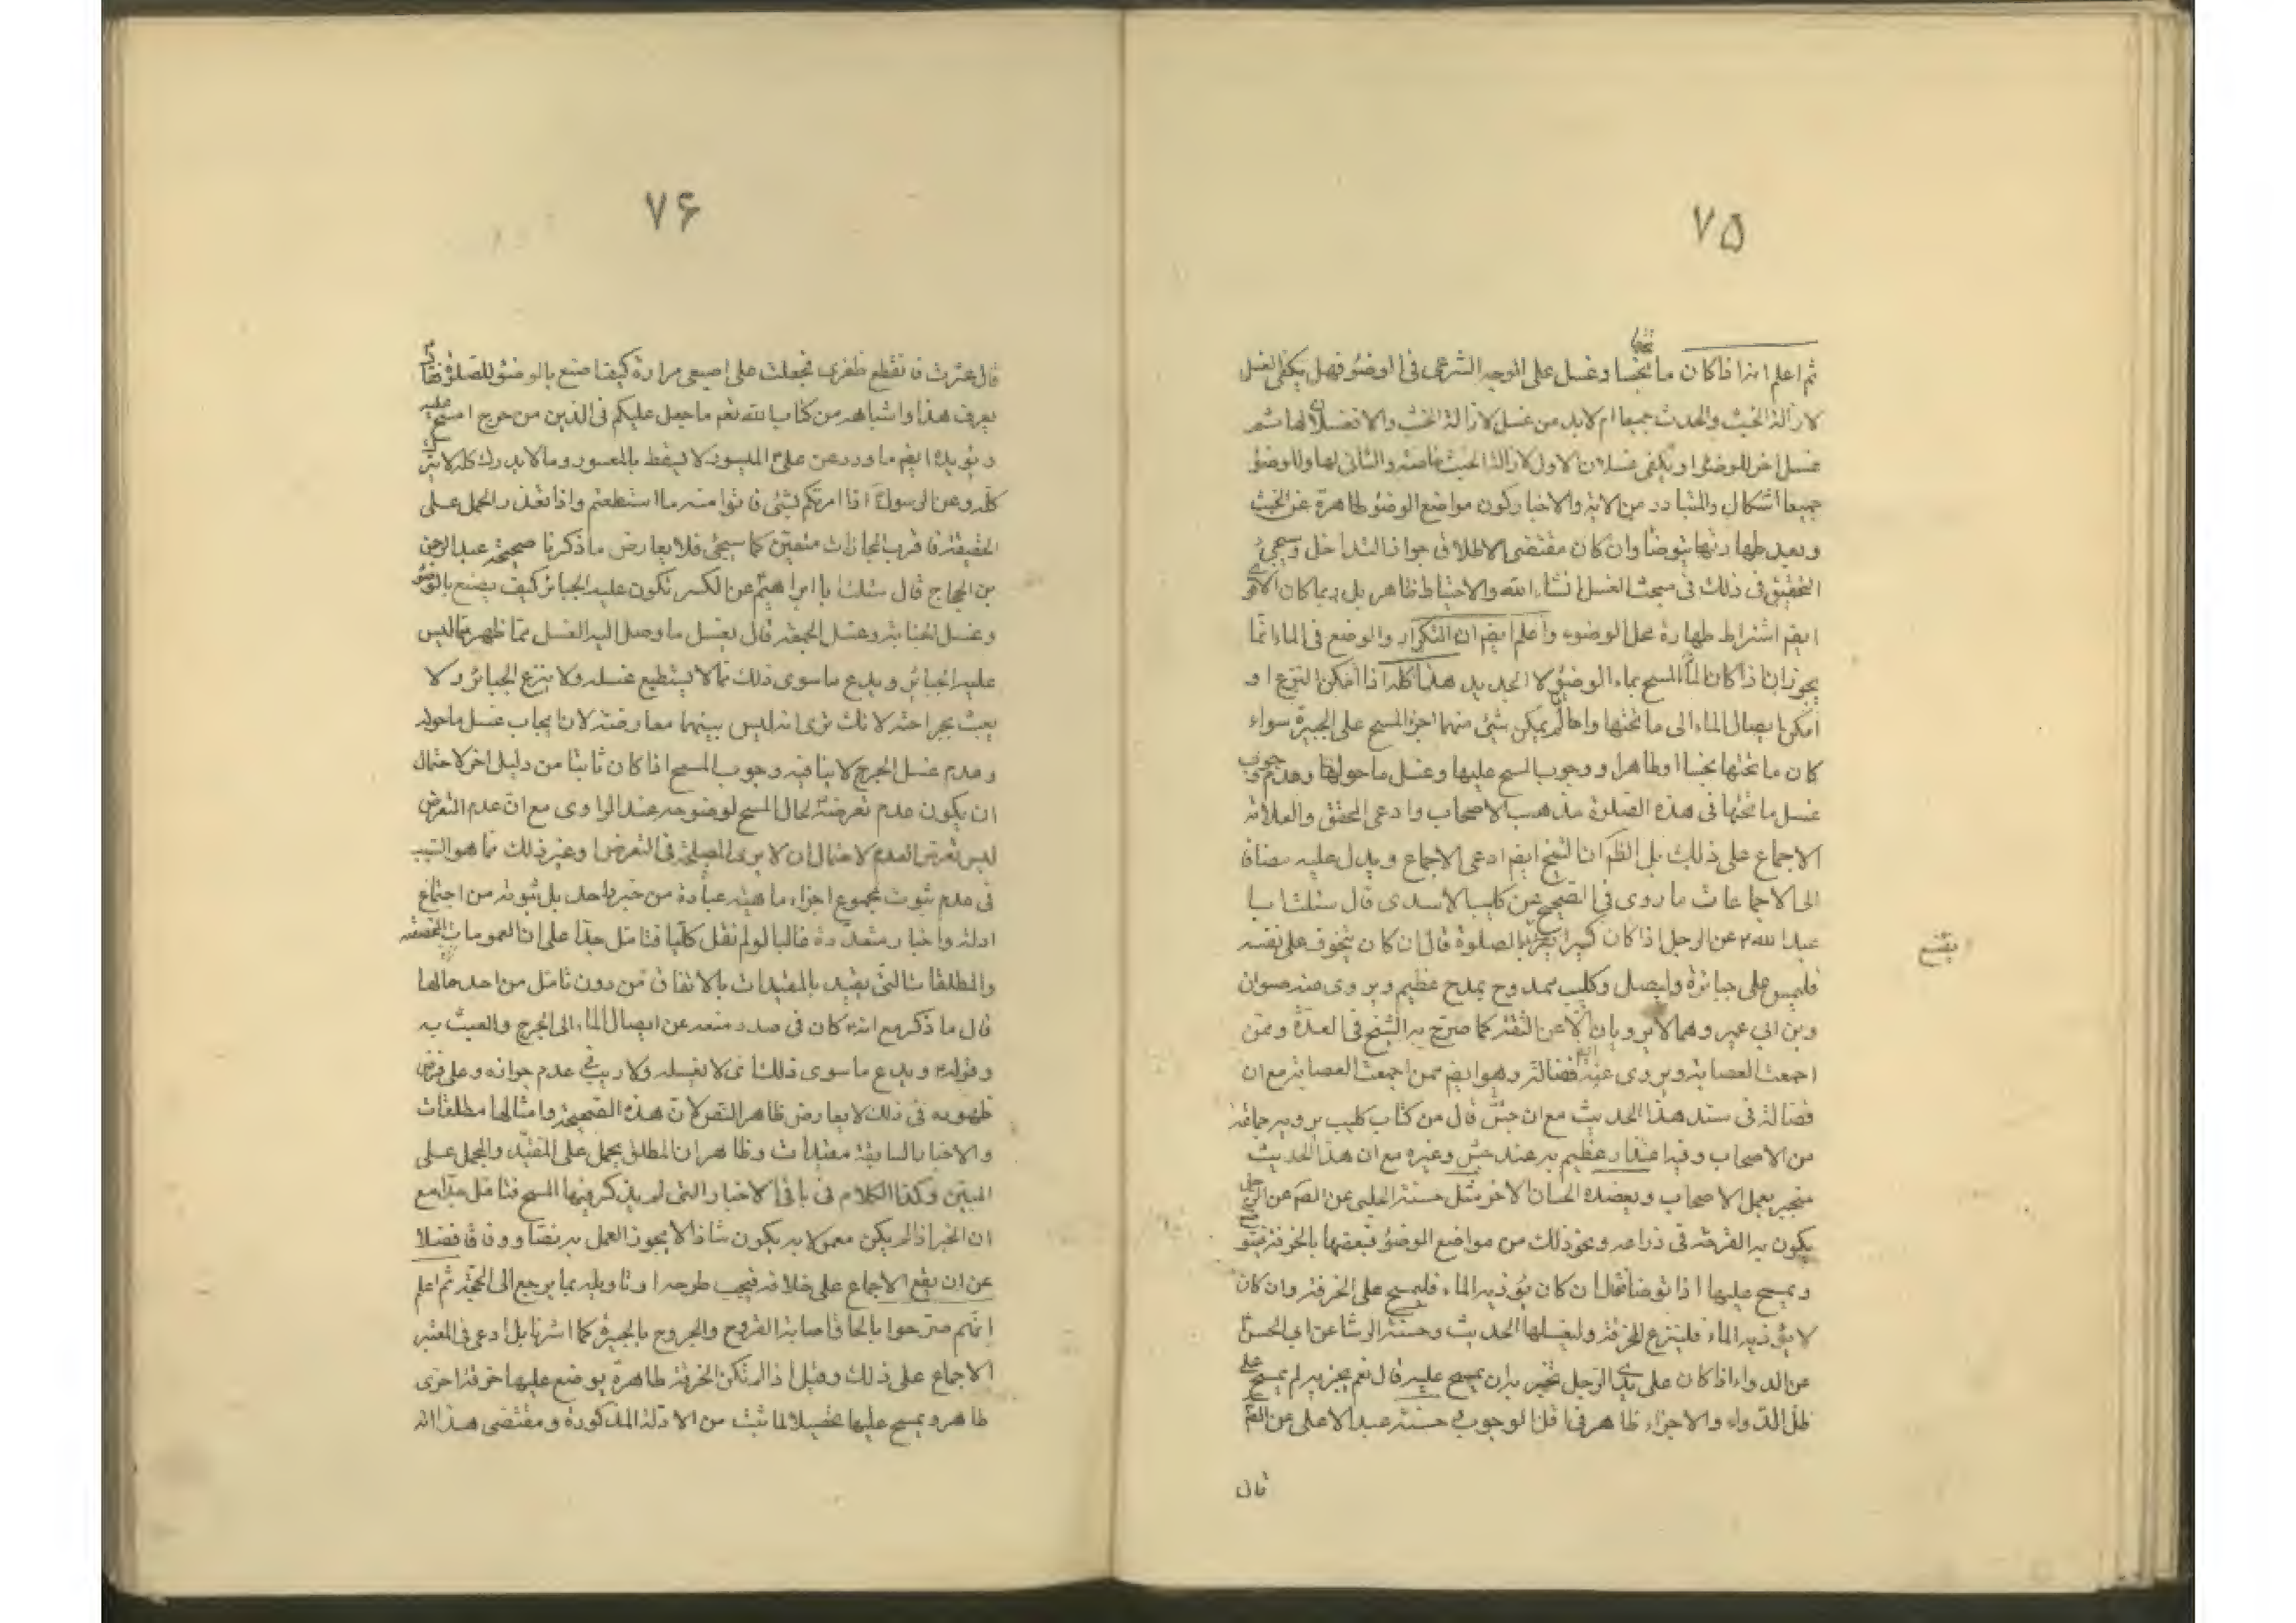 ۷۵
تحتها
ثم اعلم انه اذا كان ما تحتها نجسا وغسل على الوجه الشرعى فى الوضوء فهل يكفى الغسل
لازالة الخبث والحدث جميعا ام لابد من غسل لازالة الخبث والانفصال لها ثم
غسل اخر للوضوء او يكفى غسلان الاول لازالة الخبث خاصة والثانى لها وللوضوء
جميعا اشكال والمتبادر من الاية والاخبار كون مواضع الوضوء طاهرة عن الخبث
وبعد طهارتها يتوضأ وان كان مقتضى الاطلاق جواز التداخل وسيجئ
التحقيق فى ذلك فى مبحث الغسل انشاء الله والاحتياط ظاهر بل ربما كان الاقوى
ايضم اشتراط طهارة محل الوضوء واعلم ايضم ان التكرار والوضع فى الماء انما
يجوز ان اذا كان المسح بماء الوضوء لا الجديد هذا كله اذا امكن النزع او
امكن ايصال الماء الى ما تحتها واما لم يمكن شئ منهما اجزء المسح على الجبيرة سواء
كان ما تحتها نجسا او طاهرا ووجوب المسح عليها وغسل ما حولها وعدم وجوب
غسل ما تحتها فى هذه الصلوة مذهب الاصحاب وادعى المحقق والعلامة
الاجماع على ذلك بل الظم ان الشيخ ايضم ادعى الاجماع ويدل عليه مضافا
الى الاجماعات ما روى فى الصحيح عن كليب الاسدى قال سئلت ابا
عبد الله ع عن الرجل اذا كان كسيرا كيف يصنع بالصلوة قال ان كان يتخوف على نفسه
يصنع
فليمسح على جبائره وليصل وكليب ممدوح بمدح عظيم ويروى عنه صفوان
وبن ابى عمير وهما لا يرويان الا عن الثقة كما صرح به الشيخ فى العدة وممن
اجمعت العصابة ويروى عنه فضالة وهو ايضم ممن اجمعت العصابة مع ان
فضالة فى سند هذا الحديث مع ان جش قال من كتاب كليب يرويه جماعة
من الاصحاب وفيه اعتذار عظيم به عند جش وغيره مع ان هذا الحديث
منجبر بعمل الاصحاب ويعضده الحسان الاخر مثل حسنة الحلبى عن الصم عن الرجل
يكون به القرحة فى ذراعه ونحو ذلك من مواضع الوضوء فيعصبها بالخرقة ويتوضأ
ويمسح عليها اذا توضأ فقال ان كان يؤذيه الماء فليمسح على الخرقة وان كان
لا يؤذيه الماء فلينزع الخرقة وليغسلها الحديث وحسنة الوشا عن ابى الحسن
عن الدواء اذا كان على يدى الرجل يجزيه ان يمسح عليه قال نعم يجزيه لم يمسح على
طلى الدواء والاجزاء ظاهر فى قلنا لوجوب حسنة عبد الاعلى عن الصم
قال
۷۶
قال عثرت فانقطع ظفرى فجعلت على اصبعى مرارة كيف اصنع بالوضوء للصلوة فقال
يعرف هذا واشباهه من كتاب الله نعم ما جعل عليكم فى الدين من حرج امسح عليه
ويؤيده ايضم ما ورد عن على ع الميسور لا يسقط بالمعسور وما لا يدرك كله لا يترك
كله وعن الرسول اذا امرتكم بشئ فاتوا منه ما استطعتم واذا تعذر الحمل على
الحقيقة فاقرب المجازات متعين كما سيجئ فلا يعارض ما ذكرنا صحيحة عبد الرحمن
بن الحجاج قال سئلت ابا ابراهيم ع عن الكسر تكون عليه الجبائر كيف يصنع بالوضوء
وغسل الجنابة وغسل الجمعة قال يغسل ما وصل اليه الغسل مما ظهر مما ليس
عليه الجبائر ويدع ما سوى ذلك مما لا يستطيع غسله ولا ينزع الجبائر ولا
يعبث بجراحته لانك ترى انه ليس بينهما معارضة لان ايجاب غسل ما حوله
وعدم غسل الجرح لا ينافيه وجوب المسح اذا كان ثابتا من دليل اخر لاحتمال
ان يكون عدم تعرضه ع لحال المسح لوضوحه عند الراوى مع ان عدم التعرض
ليس تعرض العدم لاحتمال ان لا يرى المصلحة فى التعرض او غير ذلك مما هو السبب
فى عدم ثبوت مجموع اجزاء ماهية عبادة من خبر واحد بل ثبوته من اجتماع
ادلة واخبار متعددة غالبا لو لم نقل كليا فتامل جدا على ان العمومات المخصصة
والمطلقات التى يقيد بالمقيدات بالاتفاق من دون تامل من احد حالها
قال ما ذكر مع انه ع كان فى صدد منعه عن ايصال الماء الى الجرح والعبث به
وقوله ع ويدع ما سوى ذلك اى لا يغسله ولا ريب فى عدم جوازه وعلى فرض
ظهوره فى ذلك لا يعارض ظاهر النص لان هذه الصحيحة وامثالها مطلقات
والاخبار السابقة مقيدات وظاهر ان المطلق يحمل على المقيد والمجمل على
المبين وكذا الكلام فى باقى الاخبار التى لم يذكر فيها المسح فتامل جدا مع
ان الخبر اذا لم يكن معمولا به يكون شاذا لا يجوز العمل به نصا ووفاقا فضلا
عن ان يقع الاجماع على خلافه فيجب طرحه او تاويله بما يرجع الى الحجة ثم اعلم
انهم صرحوا بالحاق اصابة القروح والجروح بالجبيرة كما اشرنا بل ادعى فى المعتبر
الاجماع على ذلك وقيل اذا لم تكن الخرقة طاهرة يوضع عليها خرقة اخرى
طاهرة ويمسح عليها تحصيلا لما ثبت من الادلة المذكورة ومقتضى هذا انه